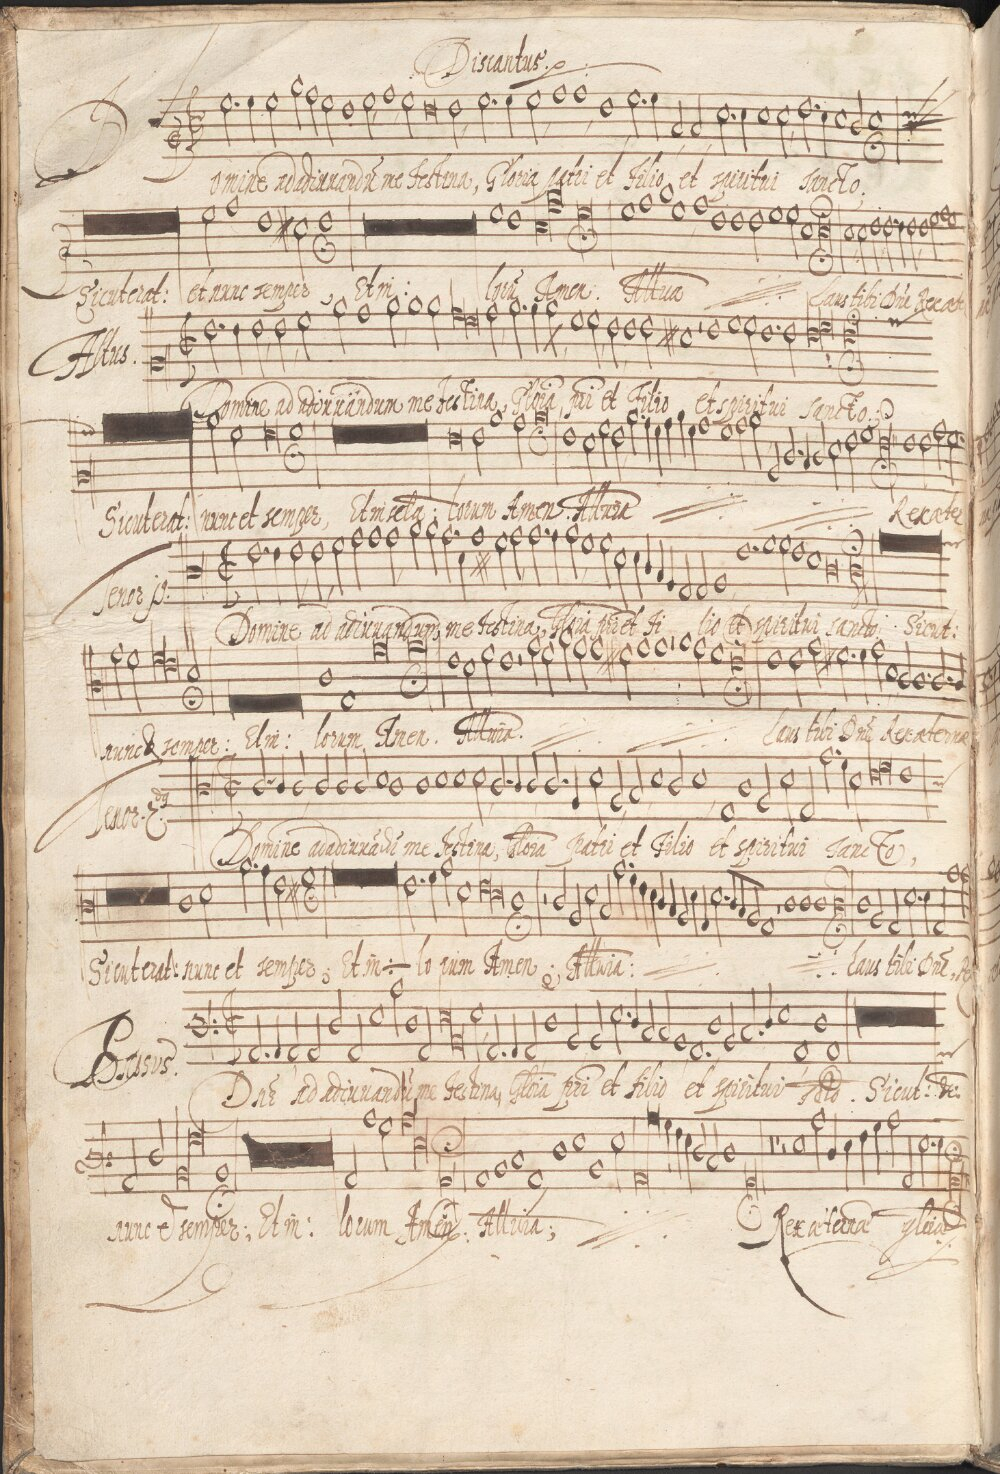 Discantus.
Domine ad adiuuandū me festina, Gloria patri et Filio et spiritui sancto.
Sicut erat: et nunc semper, Et in: lorū Amen. Alluia Laus tibi Dn̄e Rex æt
Altus.
Domine ad adiuuandum me festina, Gloia pri et Filio et spiritui sancto:
Sicut erat: nunc et semper, Et in secla: lorum Amen. Alluia Rex æter
Tenor j9.
Domine ad adiuuandum me festina, Gloia pri et Fi lio et spiritui sancto. Sicut:
nunc & semper: Et in: lorum Amen. Alluia. Laus tibi Dn̄e Rex æternæ
Tenor 2dg
Domine ad adiuuādū me festina, Gloia patri et Filio et spiritui sancto,
Sicut erat: nunc et semper; Et in: lo rum Amen; Alluia: Laus tibi Dn̄e,
Bassus.
Dn̄e ad adiuuandū me festina, Gloia pri et Filio et spiritui scto. Sicut:
nunc & semper; Et in: lorum Amen: Alluia; Rex æternæ gloiæ